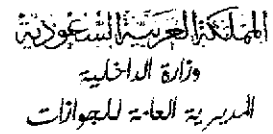 المملكة العربية السعودية
وزارة الداخلية
المديرية العامة للجوازات